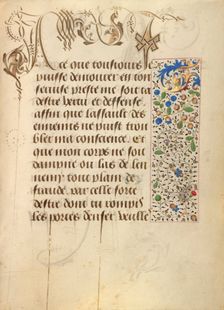 A ce que tousiours
puisse demourer en ton
seruise preste moy ta
destre vertu et deffense.
affin que lassault des
ennemis ne puist trou
bler ma conscience. Et
que mon corps ne soit
dampne ou las de len
nemy tout plain de
fraude. par celle forte
destre dont tu rompis
les portes denfer vueille